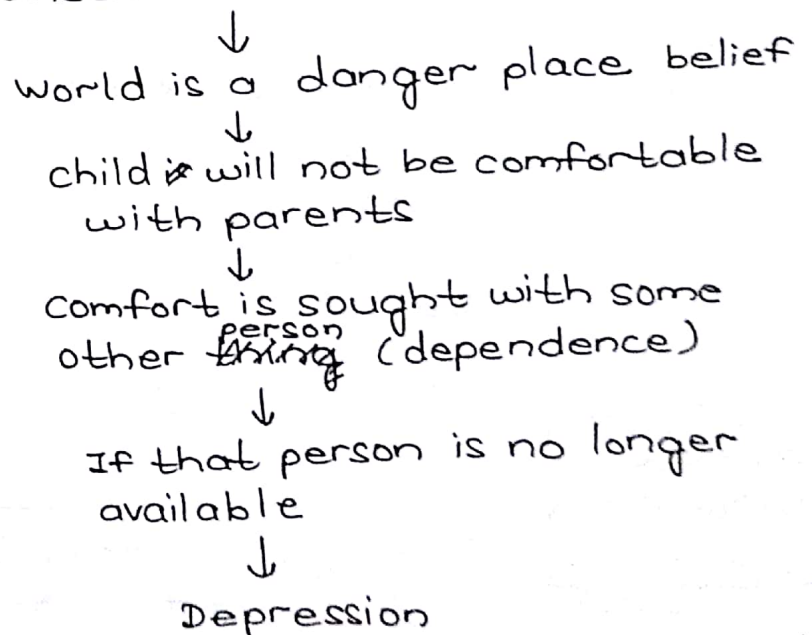 ↓
world is a danger place belief
↓
child will not be comfortable
with parents
↓
comfort is sought with some
other person (dependence)
↓
If that person is no longer
available
↓
Depression